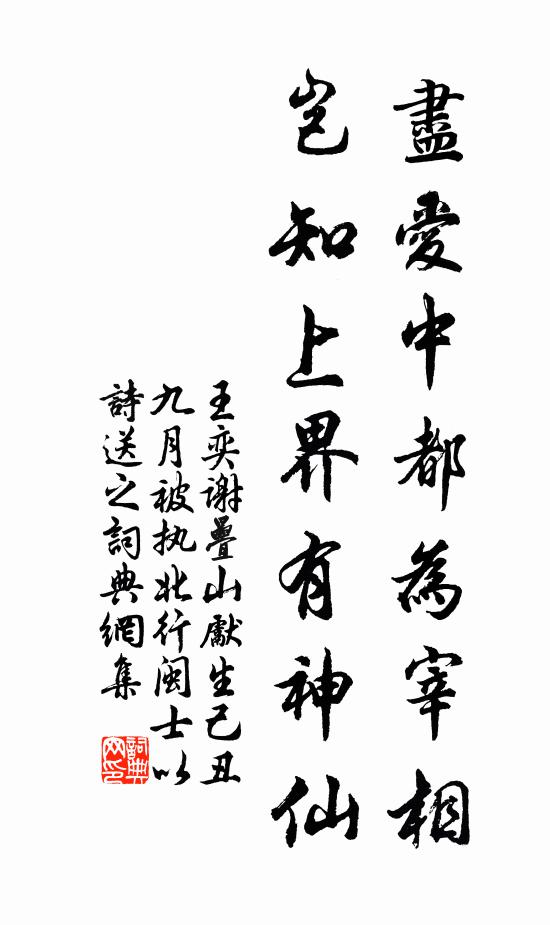 盡愛中都為宰相
豈知上界有神仙
王奕謝疊山獻生己丑
九月被执北行闽士以
詩送之詞典網集
詞典网印